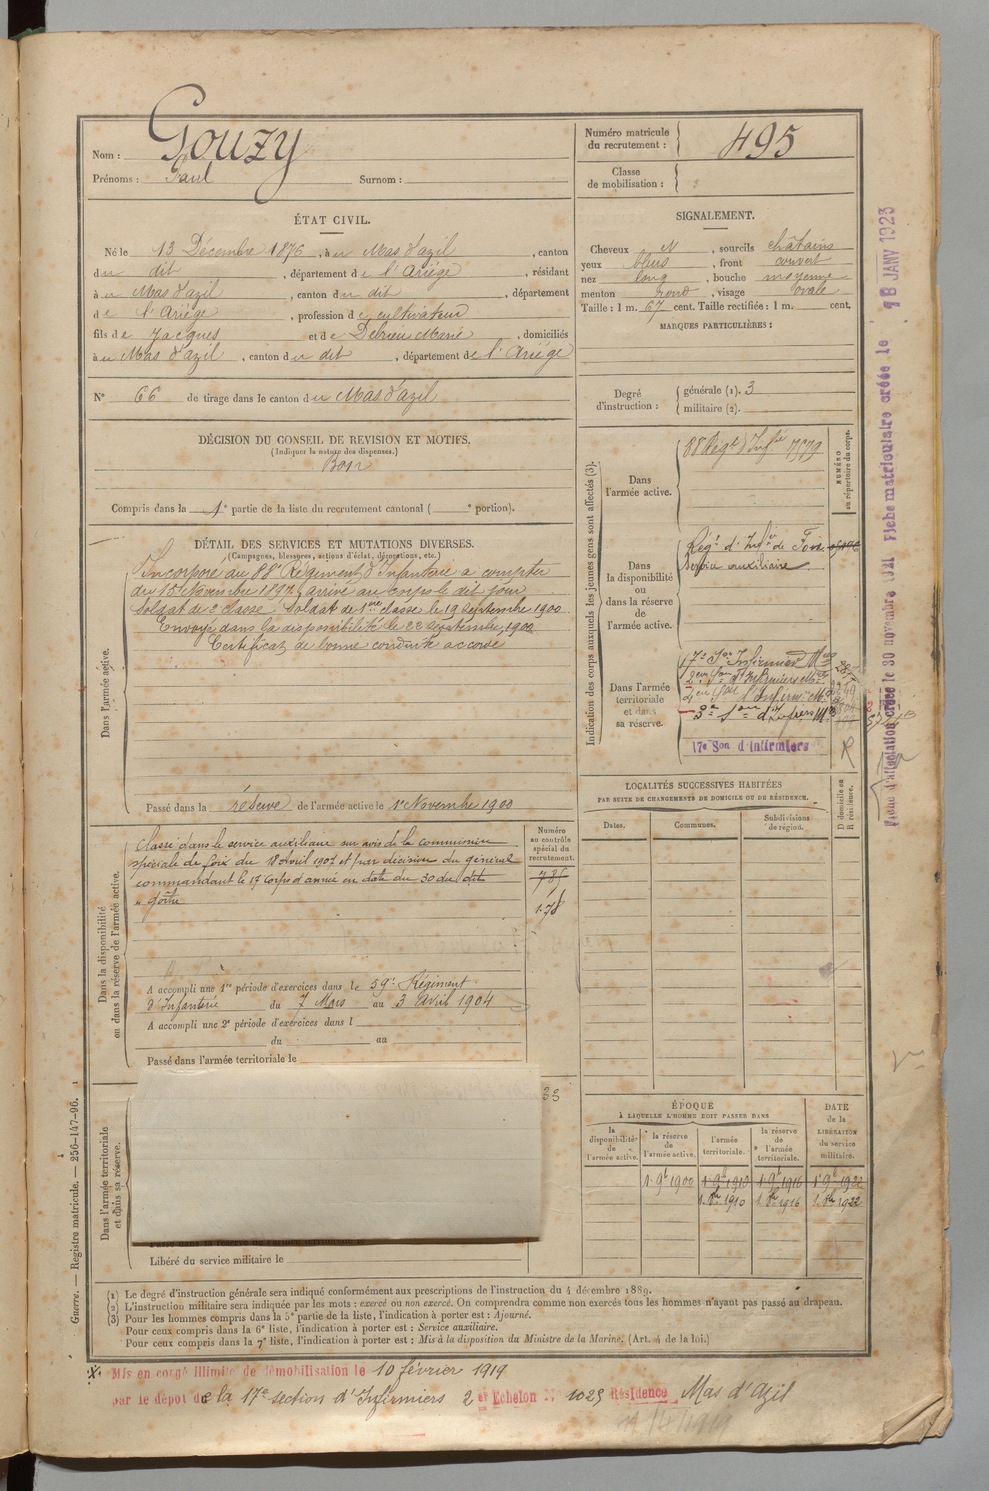 Nom : Gouzy
Prénoms : Paul Surnom :
Numéro matricule du recrutement : 495
Classe de mobilisation :
ÉTAT CIVIL.
Né le 13 Décembre 1876, à u Mas d'azil, canton
d u dit, département d e l'Ariège, résidant
à u Mas d'azil, canton d u dit, département
d e l'Ariège, profession d e cultivateur
fils d e Jacques et d e Debrieu Marie, domiciliés
à u Mas d'azil, canton d u dit, département d e l'Ariège
N° 66 de tirage dans le canton d u Mas d'azil
SIGNALEMENT.
Cheveux N, sourcils châtains
yeux bleus, front couvert
nez long, bouche moyenne
menton rond, visage ovale
Taille : 1 m. 67 cent. Taille rectifiée : 1 m. cent.
MARQUES PARTICULIÈRES :
Degré d'instruction : générale (1). 3
militaire (2).
DÉCISION DU CONSEIL DE REVISION ET MOTIFS.
(Indiquer la nature des dispenses.)
Bon
Compris dans la 1e partie de la liste du recrutement cantonal ( e portion).
DÉTAIL DES SERVICES ET MUTATIONS DIVERSES.
(Campagnes, blessures, actions d'éclat, décorations, etc.)
Dans l'armée active.
Incorporé au 88e Régiment d'Infanterie à compter
du 15 Novembre 1897, arrivé au corps le dit jour
Soldat de 2e classe. Soldat de 1ere classe le 19 Septembre 1900
Envoyé dans la disponibilité le 22 Septembre 1900
Certificat de bonne conduite accordé
Passé dans la réserve de l'armée active le 1er Novembre 1900
Dans la disponibilité ou dans la réserve de l'armée active.
Classé dans le service auxiliaire sur avis de la commission
spéciale de Foix du 18 Avril 1907 et par décision du général
commandant le 17 Corps d'armée en date du 30 du dit
" goître
Numéro au contrôle spécial du recrutement.
178
A accompli une 1re période d'exercices dans le 59e Régiment
d'Infanterie du 7 Mars au 3 avril 1904
A accompli une 2e période d'exercices dans l
du au
Passé dans l'armée territoriale le
Dans l'armée territoriale et dans sa réserve.
33
Libéré du service militaire le
Indication des corps auxquels les jeunes gens sont affectés (3).
NUMÉRO au répertoire du corps.
Dans l'armée active.
88 Régt d'Infie 7579
Dans la disponibilité ou dans la réserve de l'armée active.
Régt d'Infie de Foix
Service auxiliaire
Dans l'armée territoriale et dans sa réserve.
17e Son d'Infirmiers
LOCALITÉS SUCCESSIVES HABITÉES
PAR SUITE DE CHANGEMENTS DE DOMICILE OU DE RÉSIDENCE.
Dates. Communes. Subdivisions de région.
D domicile ou R résidence.
ÉPOQUE
À LAQUELLE L'HOMME DOIT PASSER DANS
la disponibilité de l'armée active. la réserve de l'armée active. l'armée territoriale. la réserve de l'armée territoriale.
DATE de la LIBÉRATION du service militaire.
1. 9e 1900 1. 9e 1910 1. 9e 1916 1. 9e 1922
1. 8re 1910 1. 8re 1916 1. 8re 1922
(1) Le degré d'instruction générale sera indiqué conformément aux prescriptions de l'instruction du 4 décembre 1889.
(2) L'instruction militaire sera indiquée par les mots : exercé ou non exercé. On comprendra comme non exercés tous les hommes n'ayant pas passé au drapeau.
(3) Pour les hommes compris dans la 5e partie de la liste, l'indication à porter est : Ajourné.
Pour ceux compris dans la 6e liste, l'indication à porter est : Service auxiliaire.
Pour ceux compris dans la 7e liste, l'indication à porter est : Mis à la disposition du Ministre de la Marine. (Art. 4 de la loi.)
Mis en congé illimité de démobilisation le 10 février 1919
par le dépot de la 17e section d'Infirmiers 2 er Echelon N° 1025 Résidence Mas d'Azil
Guerre. — Registre matricule. — 256-147-96.
Fiche d'affectation créée le 30 novembre 1921 Fiche matriculaire créée le 18 JANV 1923